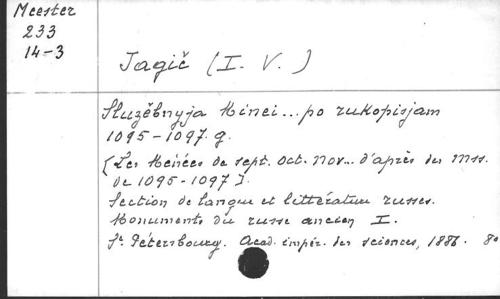 Meester
233
14-3
Jagič (I. V.)
Služěbnyja Minei... po rukopisjam
1095-1097. g.
[Les Ménées de sept. oct. nov... d'après des mss.
de 1095-1097].
Section de langue et littérature russes.
Monuments du russe ancien I.
St. Pétersbourg. Acad. impér. des sciences, 1886. 8o